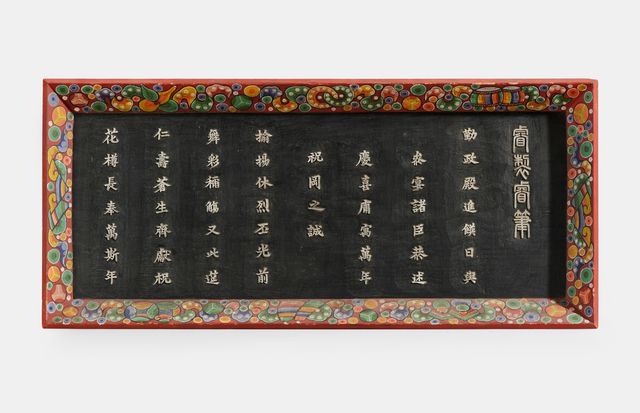 睿製睿筆
勤政殿進饌日與
叅宴諸臣恭述
慶喜庸寓萬年
祝岡之誠
揄揚休烈丕光前
舞彩稱觴又此筵
仁壽蒼生齊獻祝
花樽長奉萬斯年